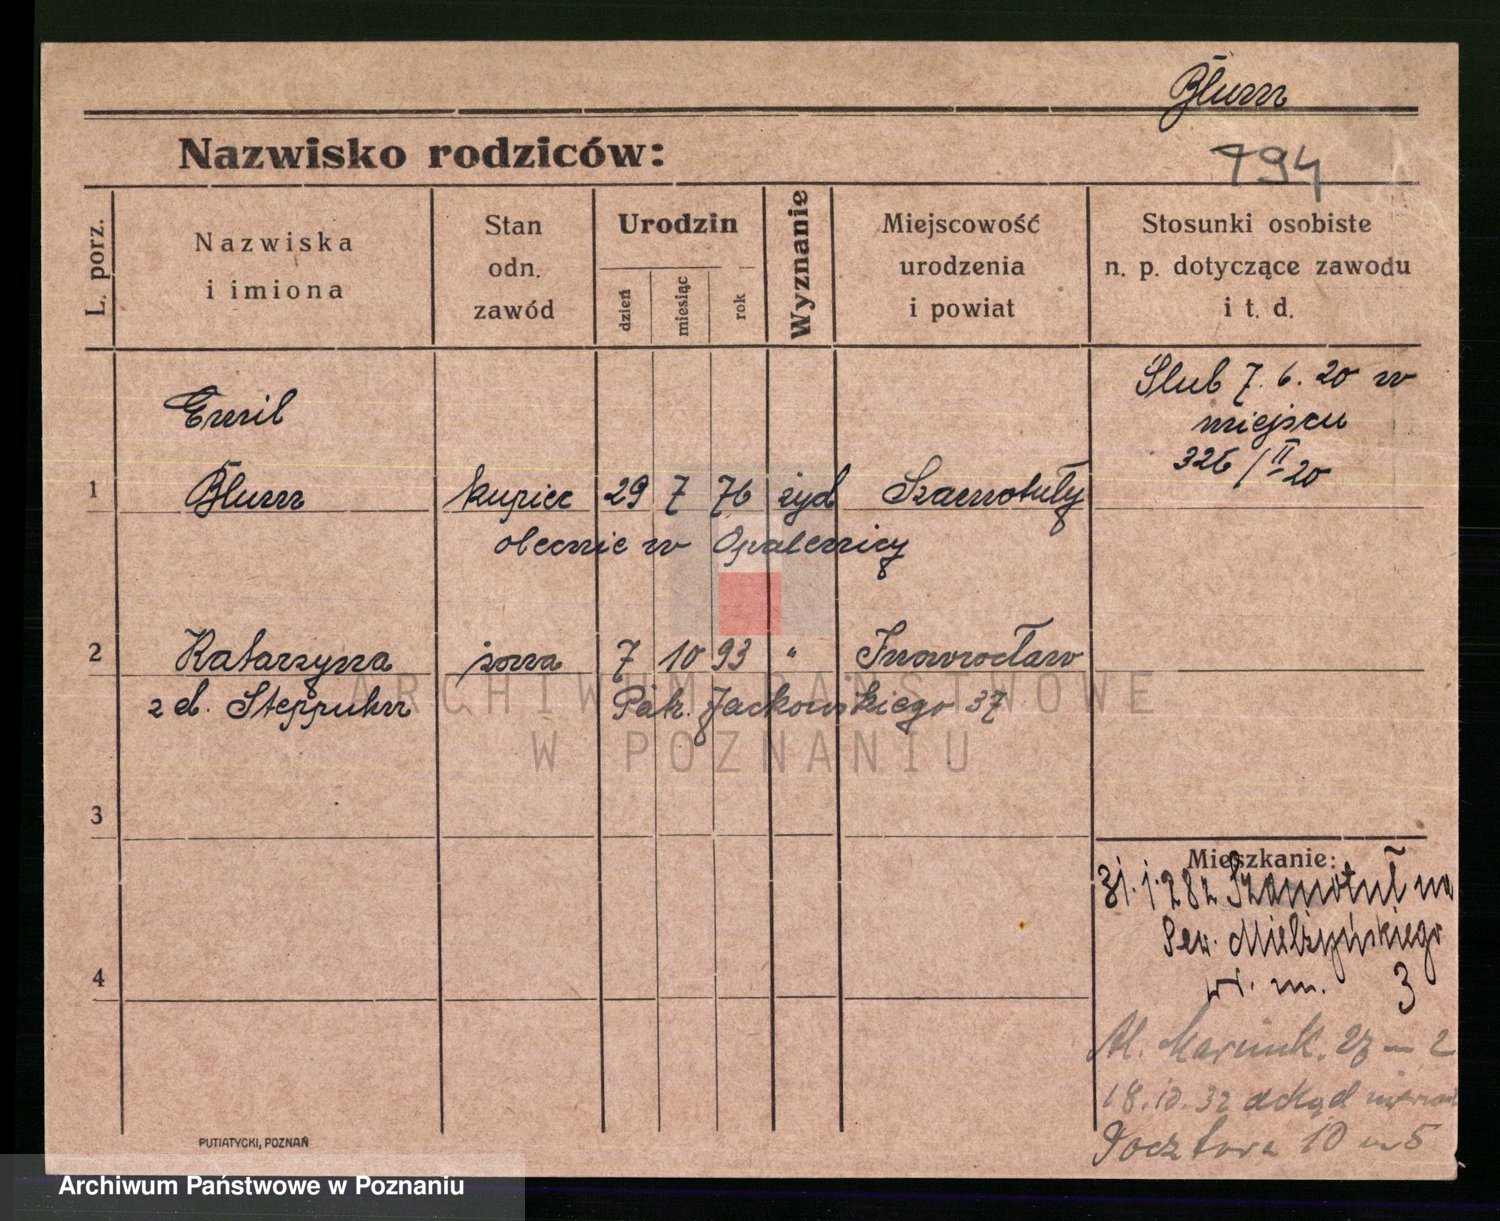 Blum
794
Nazwisko rodziców:
L. porz.
Nazwiska
i imiona
Stan
odn.
zawód
Urodzin
dzień
miesiąc
rok
Wyznanie
Miejscowość
urodzenia
i powiat
Stosunki osobiste
n. p. dotyczące zawodu
i t. d.
Ślub 7. 6. 20 w
miejscu
326/II-20
Emil
1 Blum kupiec 29 7 76 żyd Szamotuły
obecnie w Opalenicy
2 Katarzyna żona 7 10 93 " Inowrocław
z d. Steppuhn Pat. Jackowskiego 37
3
4
Mieszkanie:
31.1.28 z Szamotuł na
Sew. Mielżyńskiego
nr. m. 3
Al. Marcink. 27 - 2
18.10.32 dokąd
Pocztowa 10 m 5
PUTIATYCKI, POZNAŃ
ARCHIWUM PAŃSTWOWE
W POZNANIU
Archiwum Państwowe w Poznaniu